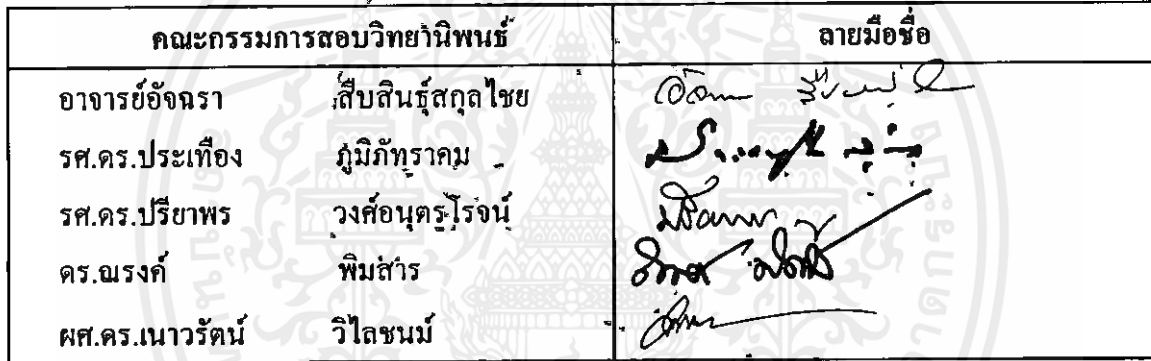 คณะกรรมการสอบวิทยานิพนธ์ ลายมือชื่อ
อาจารย์อัจฉรา สืบสินธุ์สกุลไชย
รศ.ดร.ประเทือง ภูมิภัทราคม
รศ.ดร.ปรียาพร วงศ์อนุตรโรจน์
ดร.ณรงค์ พิมสาร
ผศ.ดร.เนาวรัตน์ วิไลชนม์